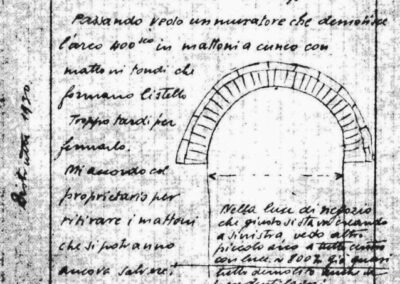 Passando vedo un muratore che demolisce
l'arco 400sco in mattoni a cuneo con
mattoni tondi che
formano listello
Troppo tardi per
fermarlo.
Mi accordo col
proprietario per
ritirare i mattoni
che si potranno
ancora salvare
Nella luce di negozio
che giusto si sta
a sinistra vedo altro
piccolo arco a tutto centro
con luce ~ 80% già quasi
tutto demolito
1930